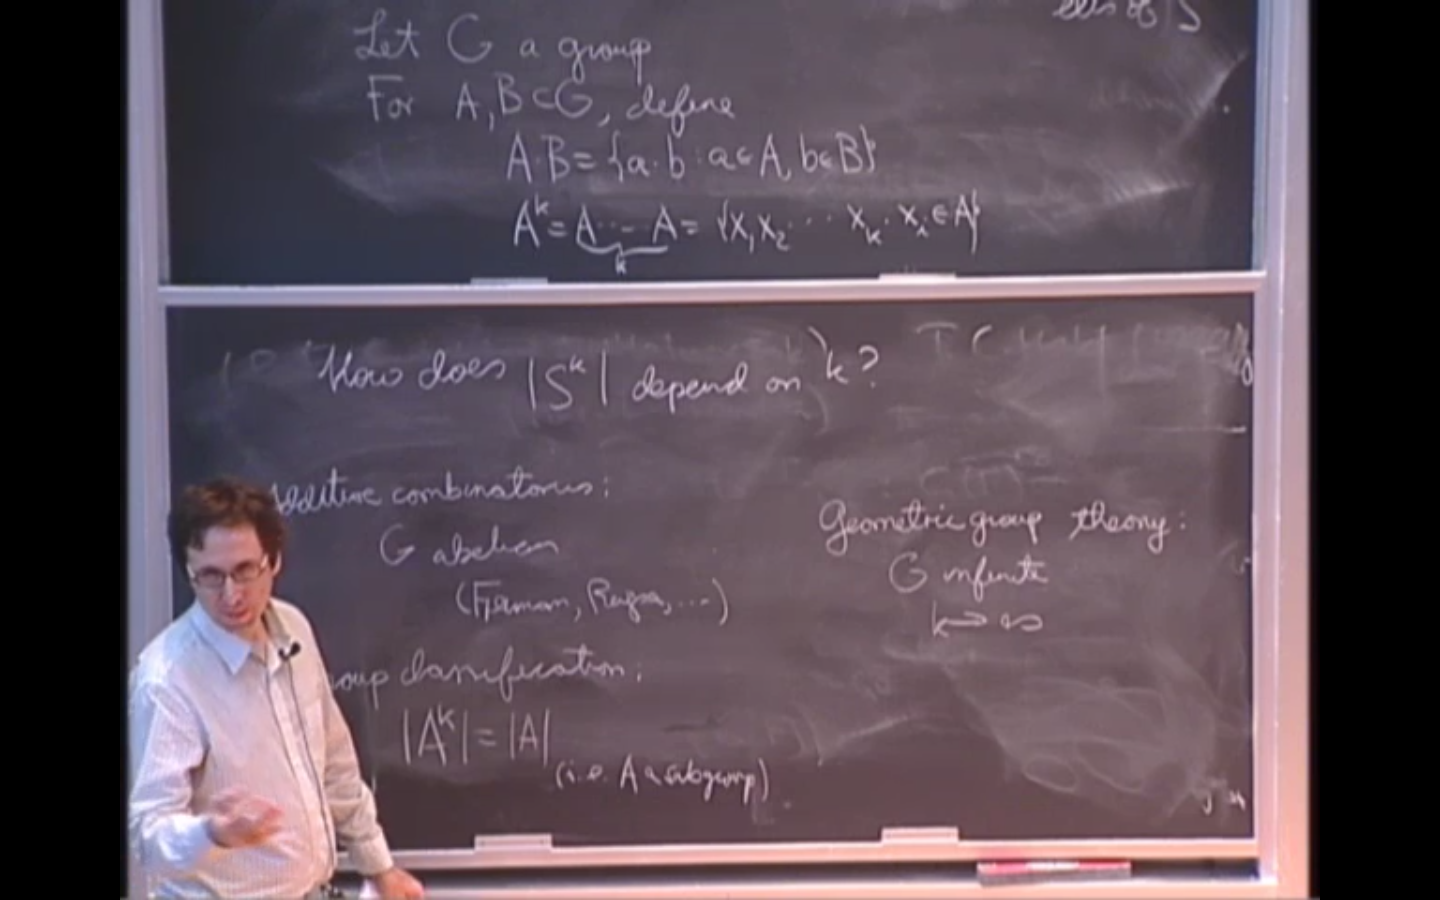 Let G a group
For A, B ⊂ G, define
A·B = {a·b : a ∈ A, b ∈ B}
A^k = A ··· A = {x₁x₂ ··· x_k : x_i ∈ A}
k
How does |S^k| depend on k?
Additive combinatorics:
G abelian
(Freiman, Ruzsa, ...)
Geometric group theory:
G infinite
k → ∞
group classification:
|A^k| = |A|
(i.e. A a subgroup)